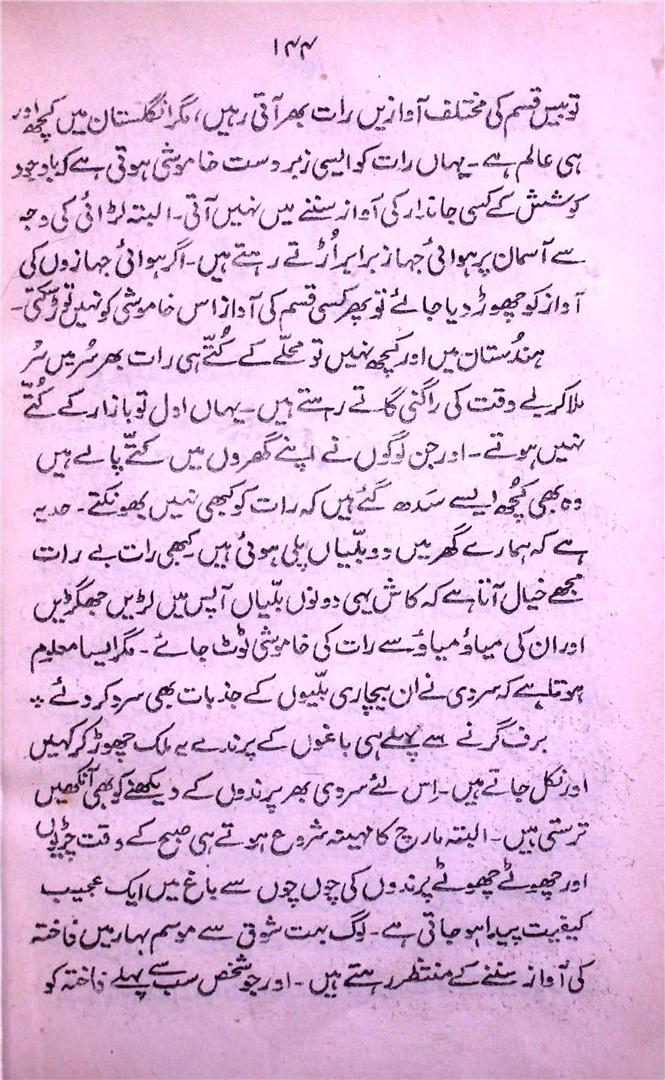 ۱۴۴
تو بیس قسم کی مختلف آوازیں رات بھر آتی رہیں، مگر انگلستان میں کچھ اور
ہی عالم ہے۔ یہاں رات کو ایسی زبردست خاموشی ہوتی ہے کہ باوجود
کوشش کے کسی جاندار کی آواز سننے میں نہیں آتی۔ البتہ لڑائی کی وجہ
سے آسمان پر ہوائی جہاز برابر اُڑتے رہتے ہیں۔ اگر ہوائی جہازوں کی
آواز کو چھوڑ دیا جائے تو پھر کسی قسم کی آواز اس خاموشی کو نہیں توڑ سکتی۔
ہندُستان میں اور کچھ نہیں تو محلّے کے کُتّے ہی رات بھر سُر میں سُر
ملا کر بے وقت کی راگنی گاتے رہتے ہیں۔ یہاں اول تو بازار کے کُتّے
نہیں ہوتے۔ اور جن لوگوں نے اپنے گھروں میں کتّے پالے ہیں
وہ بھی کُچھ ایسے سَدھ گئے ہیں کہ رات کو کبھی نہیں بھونکتے۔ حد یہ
ہے کہ ہمارے گھر میں دو بلّیاں پلی ہوئی ہیں۔ کبھی رات بے رات
مجھے خیال آتا ہے کہ کاش یہی دونوں بلّیاں آپس میں لڑیں جھگڑیں
اور ان کی میاؤ میاؤ سے رات کی خاموشی ٹوٹ جائے۔ مگر ایسا معلوم
ہوتا ہے کہ سردی نے ان بیچاری بلّیوں کے جذبات بھی سرد کر دئے ؞
برف گرنے سے پہلے ہی باغوں کے پرندے یہ ملک چھوڑ کر کہیں
اور نکل جاتے ہیں۔ اِس لئے سردی بھر پرندوں کے دیکھنے کو بھی آنکھیں
ترستی ہیں۔ البتہ مارچ کا مہینہ شروع ہوتے ہی صبح کے وقت چڑیوں
اور چھوٹے چھوٹے پرندوں کی چوں چوں سے باغ میں ایک عجیب
کیفیت پیدا ہو جاتی ہے۔ لوگ بہت شوق سے موسم بہار میں فاختہ
کی آواز سننے کے منتظر رہتے ہیں۔ اور جو شخص سب سے پہلے فاختہ کو